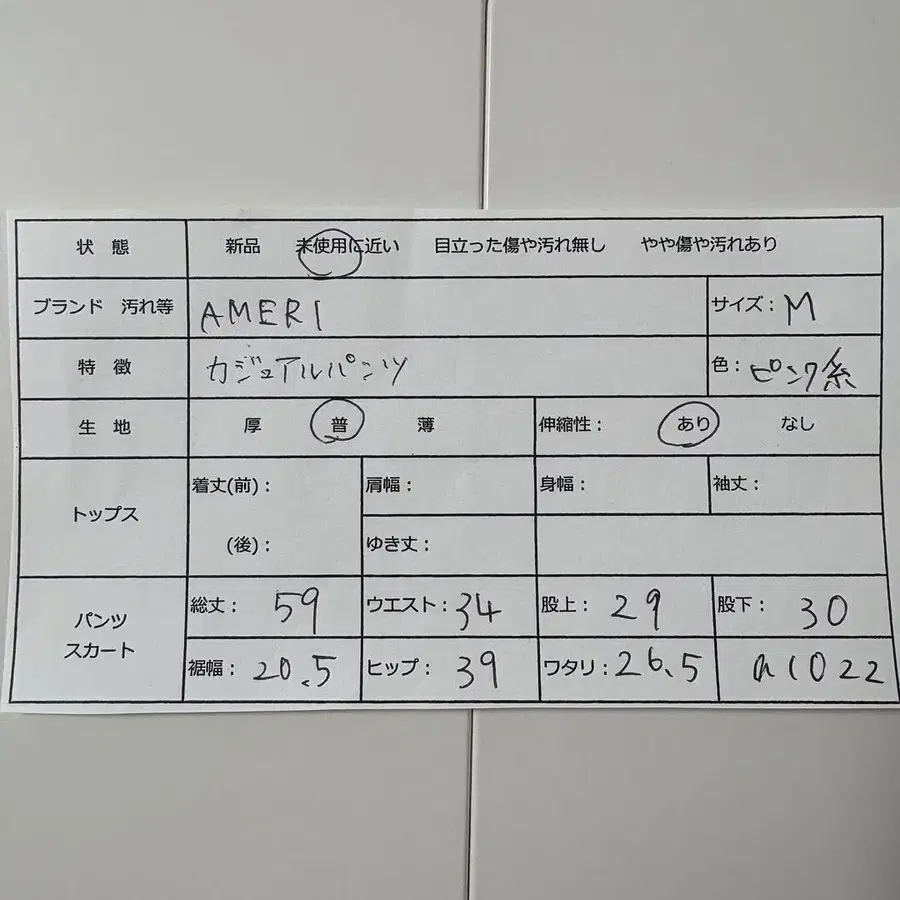 状 態 新品 未使用に近い 目立った傷や汚れ無し やや傷や汚れあり
ブランド 汚れ等 AMERI サイズ： M
特 徴 カジュアルパンツ 色： ピンク系
生 地 厚 普 薄 伸縮性： あり なし
トップス 着丈(前)： 肩幅： 身幅： 袖丈：
(後)： ゆき丈：
パンツ スカート 総丈： 59 ウエスト： 34 股上： 29 股下： 30
裾幅： 20.5 ヒップ： 39 ワタリ： 26.5 a1022